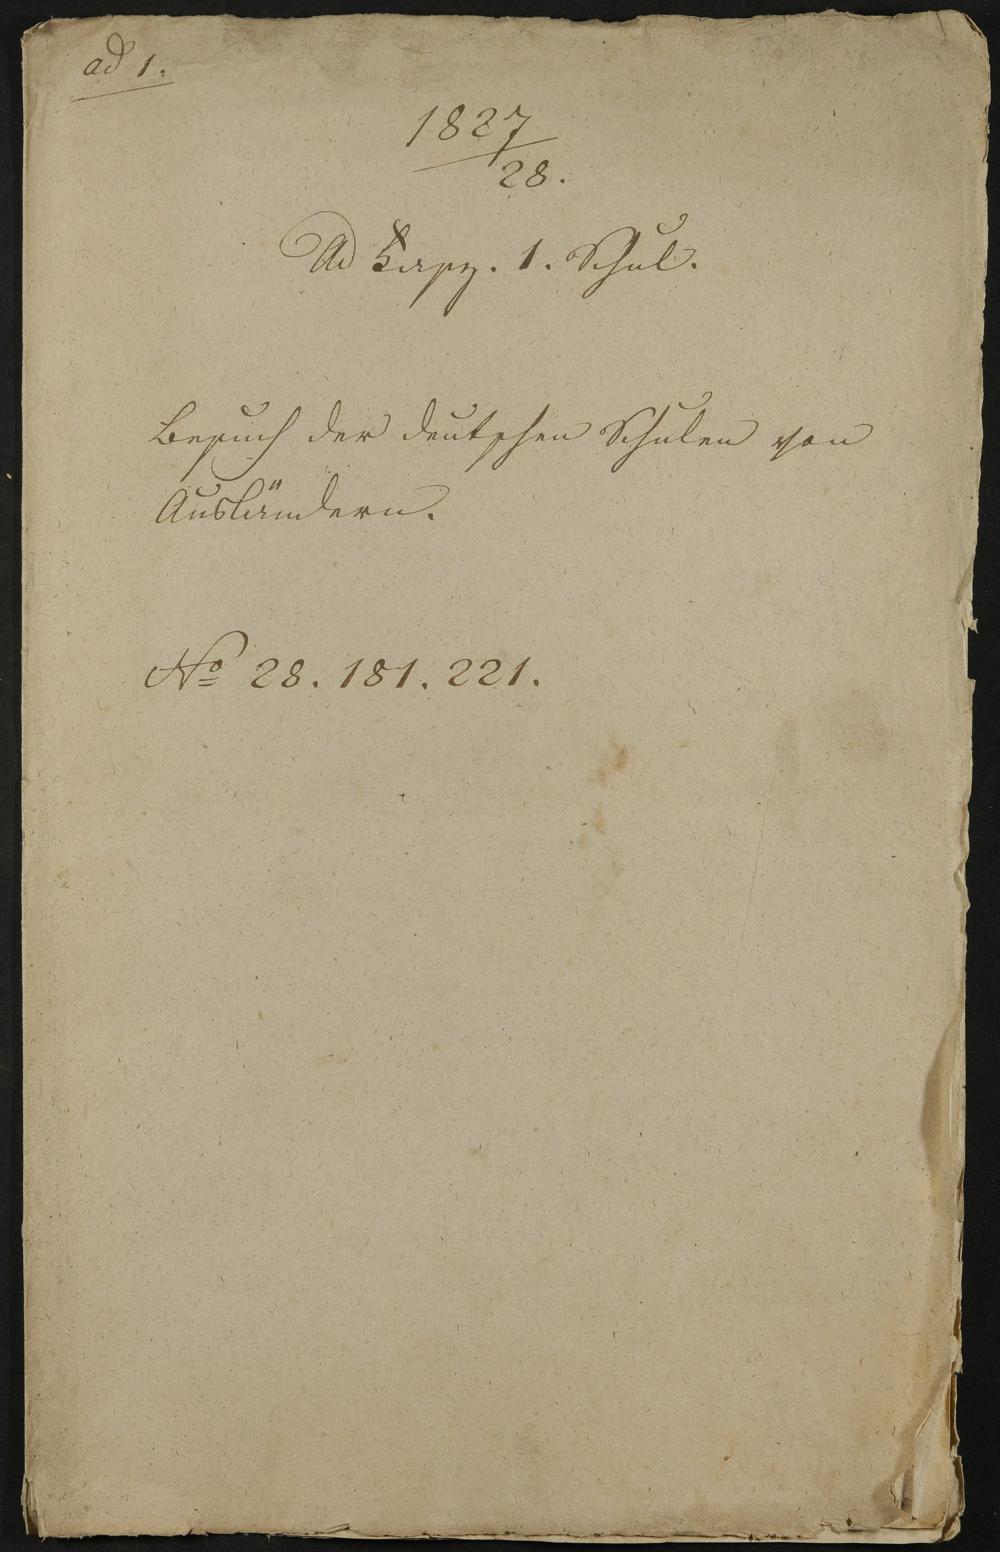 ad 1.
1827
28.
Ad Kapz. 1. Schul.
Besuch der deutschen Schulen von
Ausländern.
No 28. 181. 221.